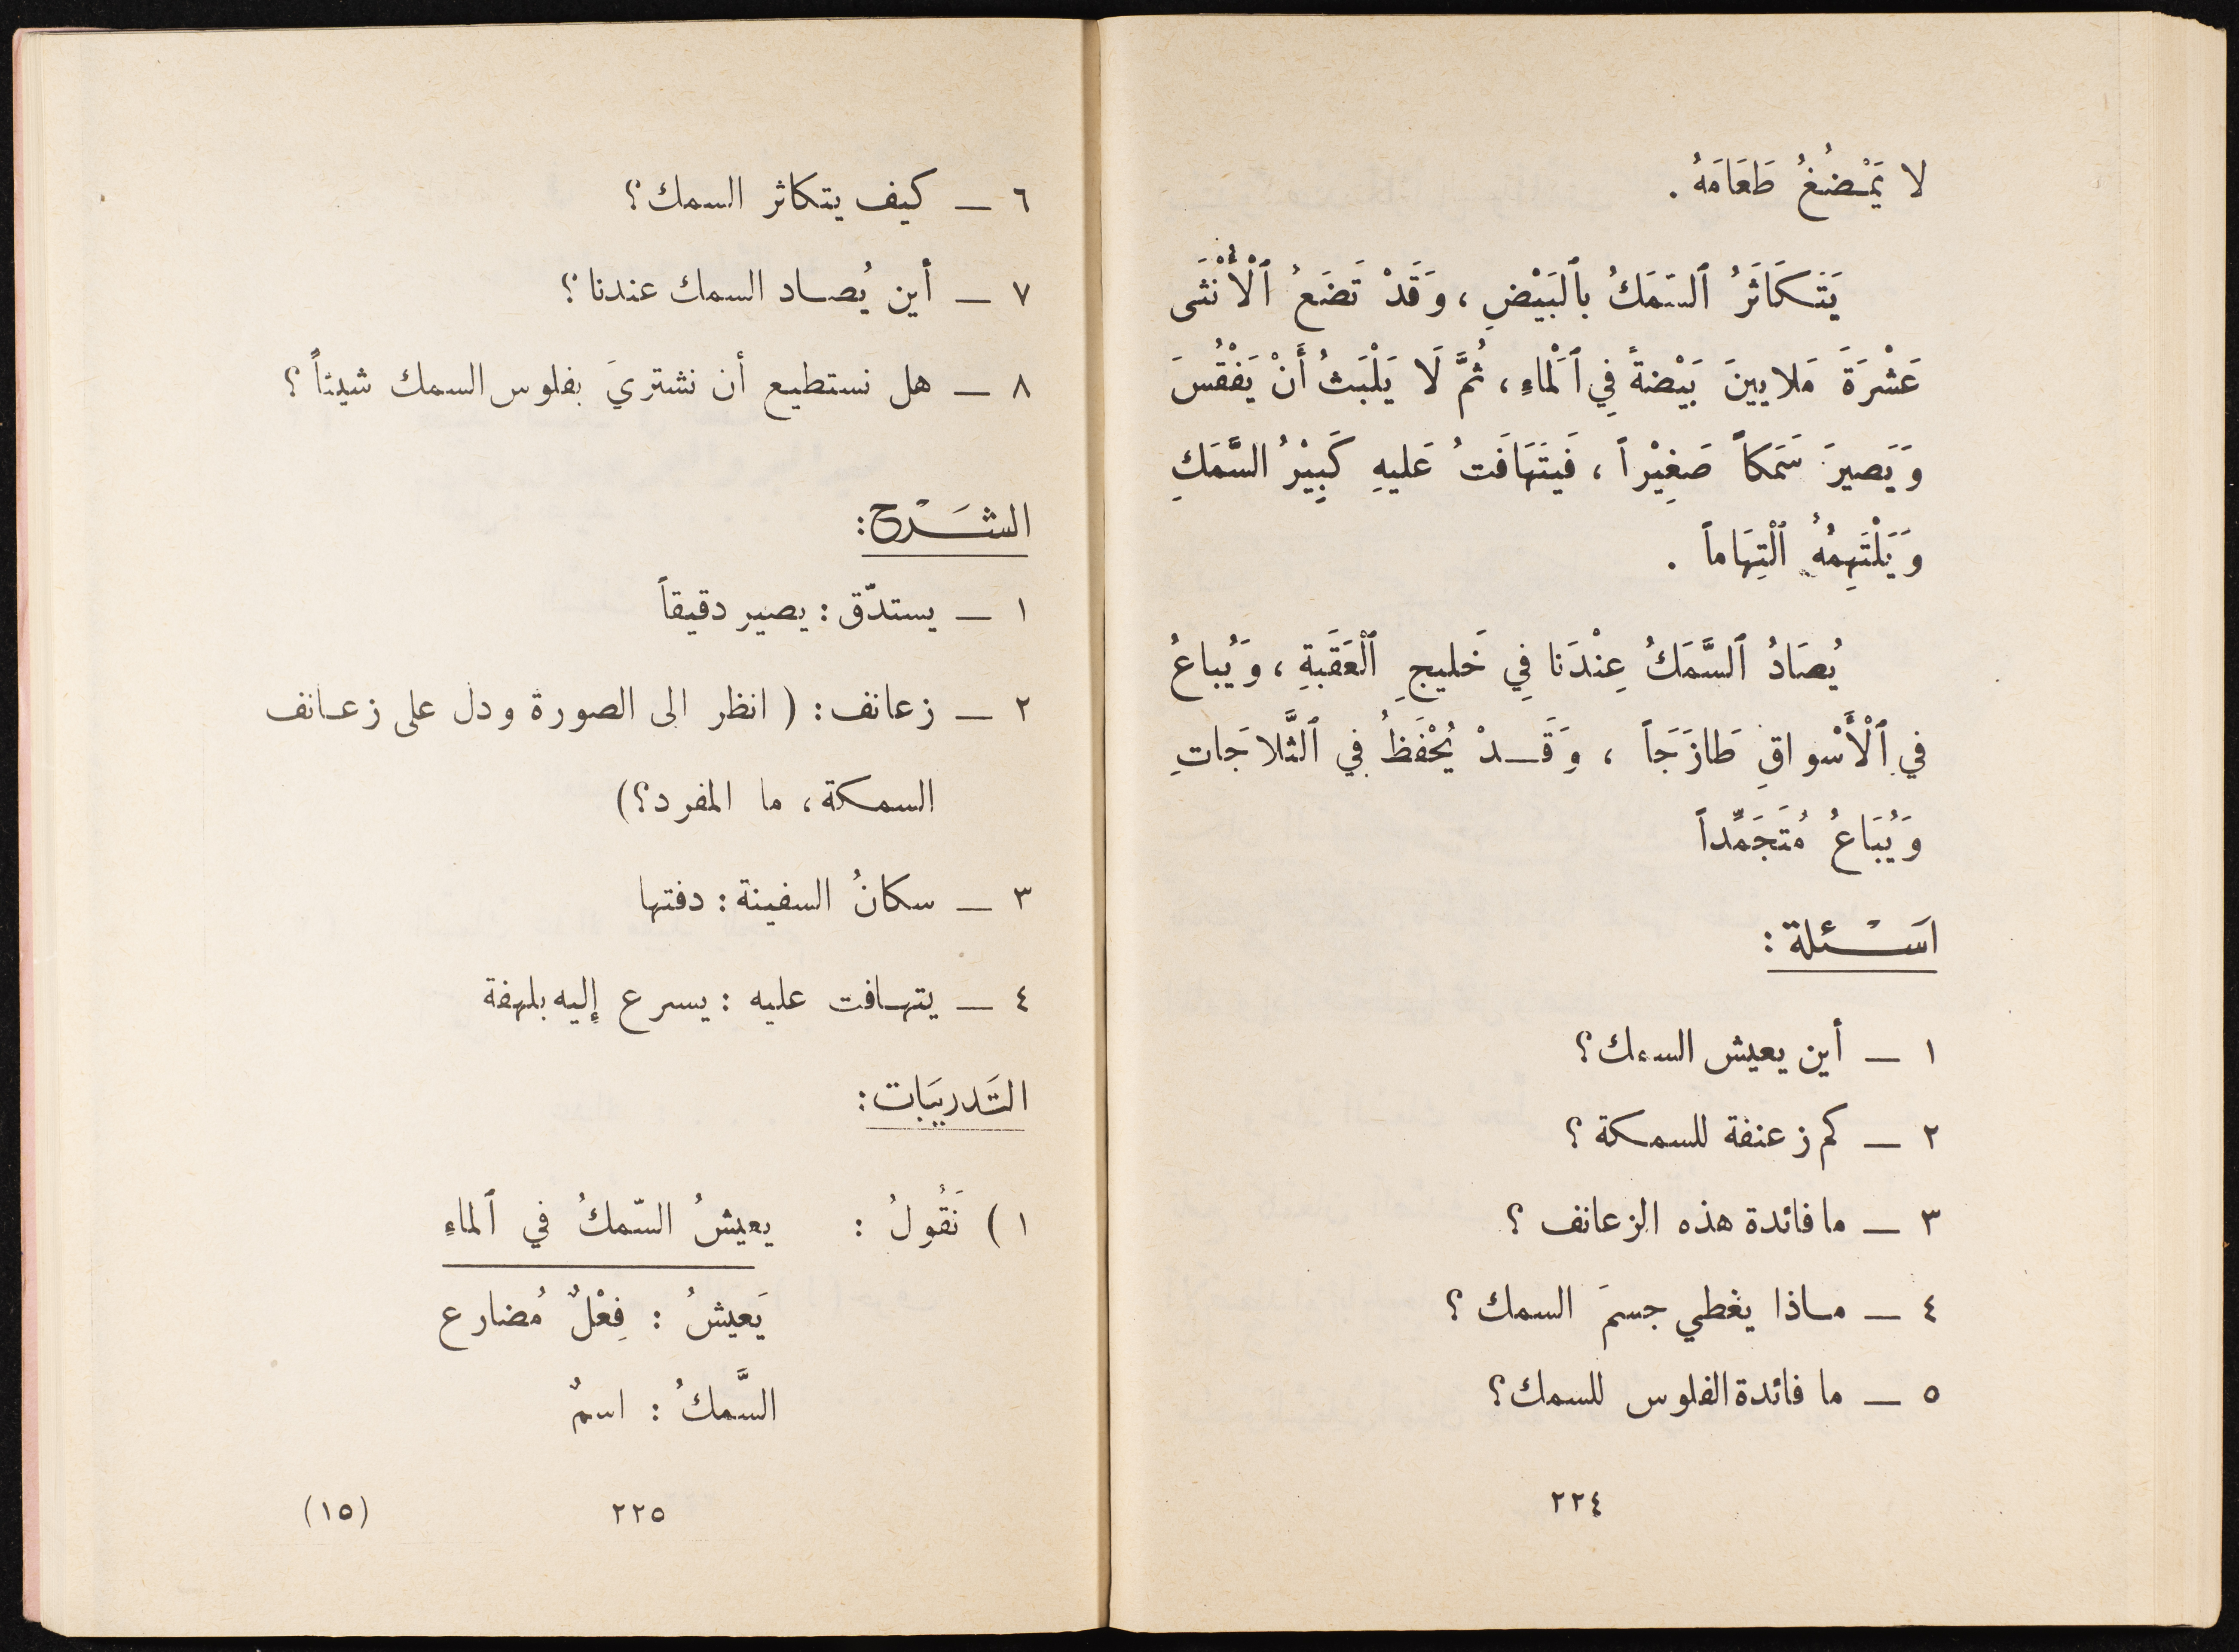 لا يَمْضُغُ طَعَامَهُ .
يَتَكَاثَرُ ٱلسَّمَكُ بالبَيْضِ ، وَقَدْ تَضَعُ ٱلْأُنْثَى
عَشْرَةَ مَلايينَ بَيْضةً فِي ٱلْماءِ ، ثُمَّ لَا يَلْبَثُ أَنْ يَفْقُسَ
وَيَصيرَ سَمَكاً صَغِيْراً ، فَيتَهَافَتُ عَليهِ كَبِيْرُ السَّمَكِ
وَيَلْتَهِمُهُ ٱلْتِهَاماً .
يُصَادُ ٱلسَّمَكُ عِنْدَنا فِي خَليجِ ٱلْعَقَبَةِ ، وَيُباعُ
في ٱلْأَسْواقِ طَازَجَاً ، وَقَدْ يُحْفَظُ فِي ٱلثَّلاجَاتِ
وَيُبَاعُ مُتَجَمِّداً
اسَْئلة :
١ – أين يعيش السمك؟
٢ – كم زعنفة للسمكة ؟
٣ – ما فائدة هذه الزعانف ؟
٤ – ماذا يغطي جسمَ السمك ؟
٥ – ما فائدة الفلوس للسمك؟
٢٢٤
٦ – كيف يتكاثر السمك؟
٧ – أين يُصاد السمك عندنا ؟
٨ – هل نستطيع أن نشتريَ بفلوس السمك شيئاً ؟
الشَرْح :
١ – يستدّق : يصير دقيقاً
٢ – زعانف : ( انظر الى الصورة ودل على زعانف
السمكة ، ما المفرد؟)
٣ – سكانُ السفينة : دفتها
٤ – يتهافت عليه : يسرع إليه بلهفة
التَدريبَات :
١ ) نَقُولُ : يعيشُ السّمكُ في ٱلماءِ
يَعيشُ : فِعْلٌ مُضارع
السَّمكُ : اسمٌ
٢٢٥ (١٥)